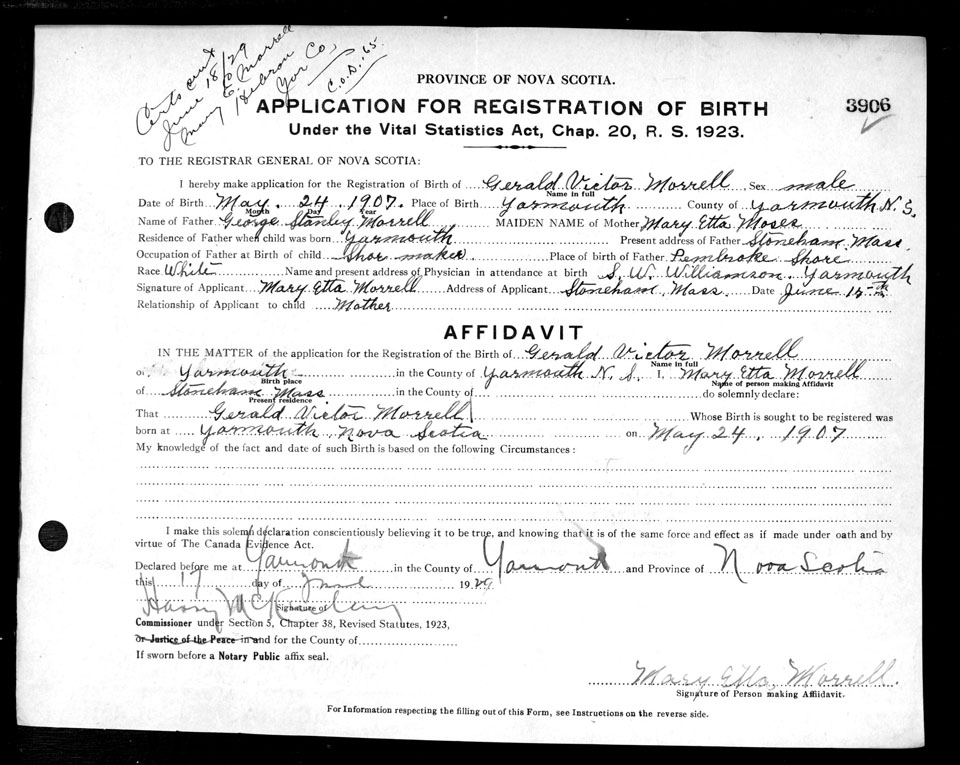 Certs out
June 18/29
Mary E. Morrell
Hebron
Yar Co,
C.O.D. .65
PROVINCE OF NOVA SCOTIA.
APPLICATION FOR REGISTRATION OF BIRTH
3906
Under the Vital Statistics Act, Chap. 20, R. S. 1923.
TO THE REGISTRAR GENERAL OF NOVA SCOTIA:
I hereby make application for the Registration of Birth of Gerald Victor Morrell Sex male
Name in full
Date of Birth May 24 1907. Place of Birth Yarmouth County of Yarmouth N. S.
Month Day Year
Name of Father George Stanley Morrell MAIDEN NAME of Mother Mary Etta Moses
Residence of Father when child was born Yarmouth Present address of Father Stoneham Mass
Occupation of Father at Birth of child Shoe maker Place of birth of Father Pembroke Shore
Race White Name and present address of Physician in attendance at birth S. W. Williamson Yarmouth
Signature of Applicant Mary Etta Morrell Address of Applicant Stoneham, Mass. Date June 15th
Relationship of Applicant to child Mother
AFFIDAVIT
IN THE MATTER of the application for the Registration of the Birth of Gerald Victor Morrell
Name in full
of Yarmouth in the County of Yarmouth N. S. I, Mary Etta Morrell
Birth place Name of person making Affidavit
of Stoneham Mass. in the County of do solemnly declare:
Present residence
That Gerald Victor Morrell Whose Birth is sought to be registered was
born at Yarmouth, Nova Scotia on May 24, 1907
My knowledge of the fact and date of such Birth is based on the following Circumstances:
I make this solemn declaration conscientiously believing it to be true, and knowing that it is of the same force and effect as if made under oath and by
virtue of The Canada Evidence Act.
Declared before me at Yarmouth in the County of Yarmouth and Province of Nova Scotia
this 17 day of June 1929
Harry
Signature of
Commissioner under Section 5, Chapter 38, Revised Statutes, 1923,
or Justice of the Peace in and for the County of
If sworn before a Notary Public affix seal.
Mary Etta Morrell.
Signature of Person making Affidavit.
For Information respecting the filling out of this Form, see Instructions on the reverse side.